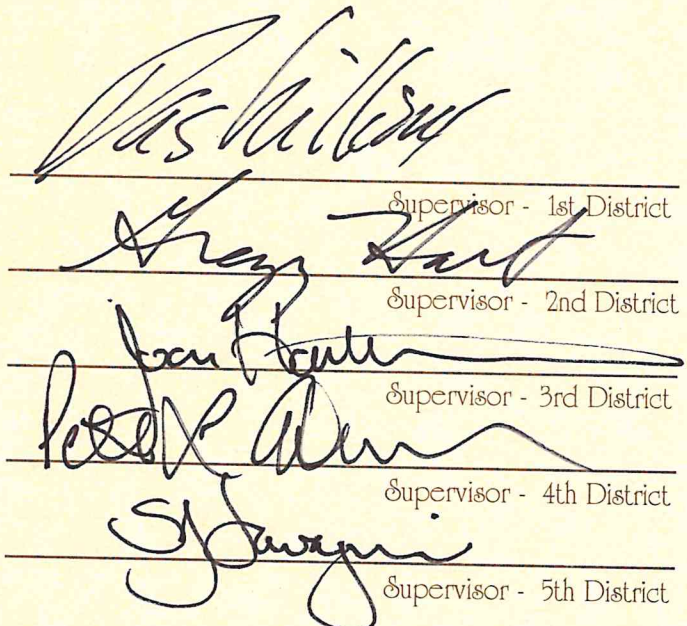 Das Williams
Supervisor - 1st District
Gregg Hart
Supervisor - 2nd District
Joan Hartmann
Supervisor - 3rd District
Peter
Supervisor - 4th District
Supervisor - 5th District